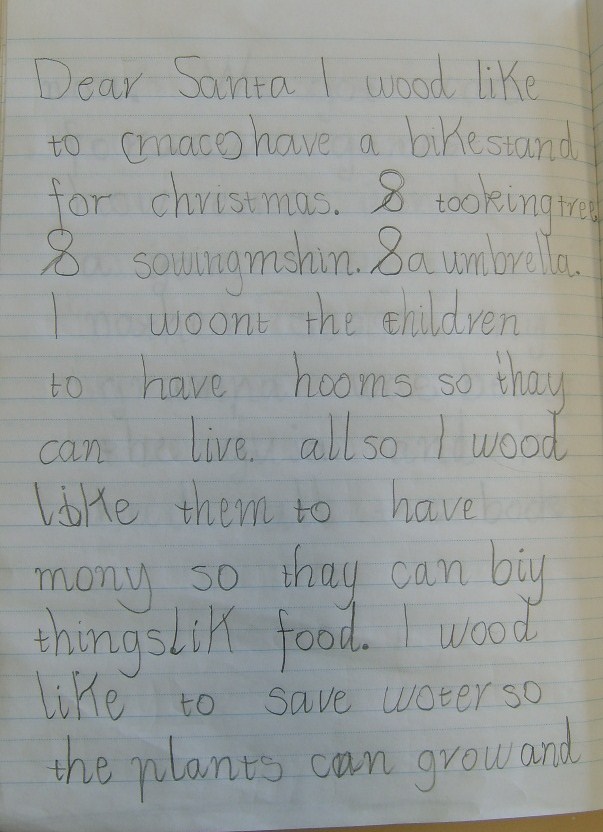 Dear Santa I wood like
to (mace) have a bikestand
for christmas. & tookingtree
& sowingmshin. & a umbrella.
I woont the children
to have hooms so thay
can live. allso I wood
like them to have
mony so thay can biy
thingsliK food. I wood
like to save woter so
the plants can grow and